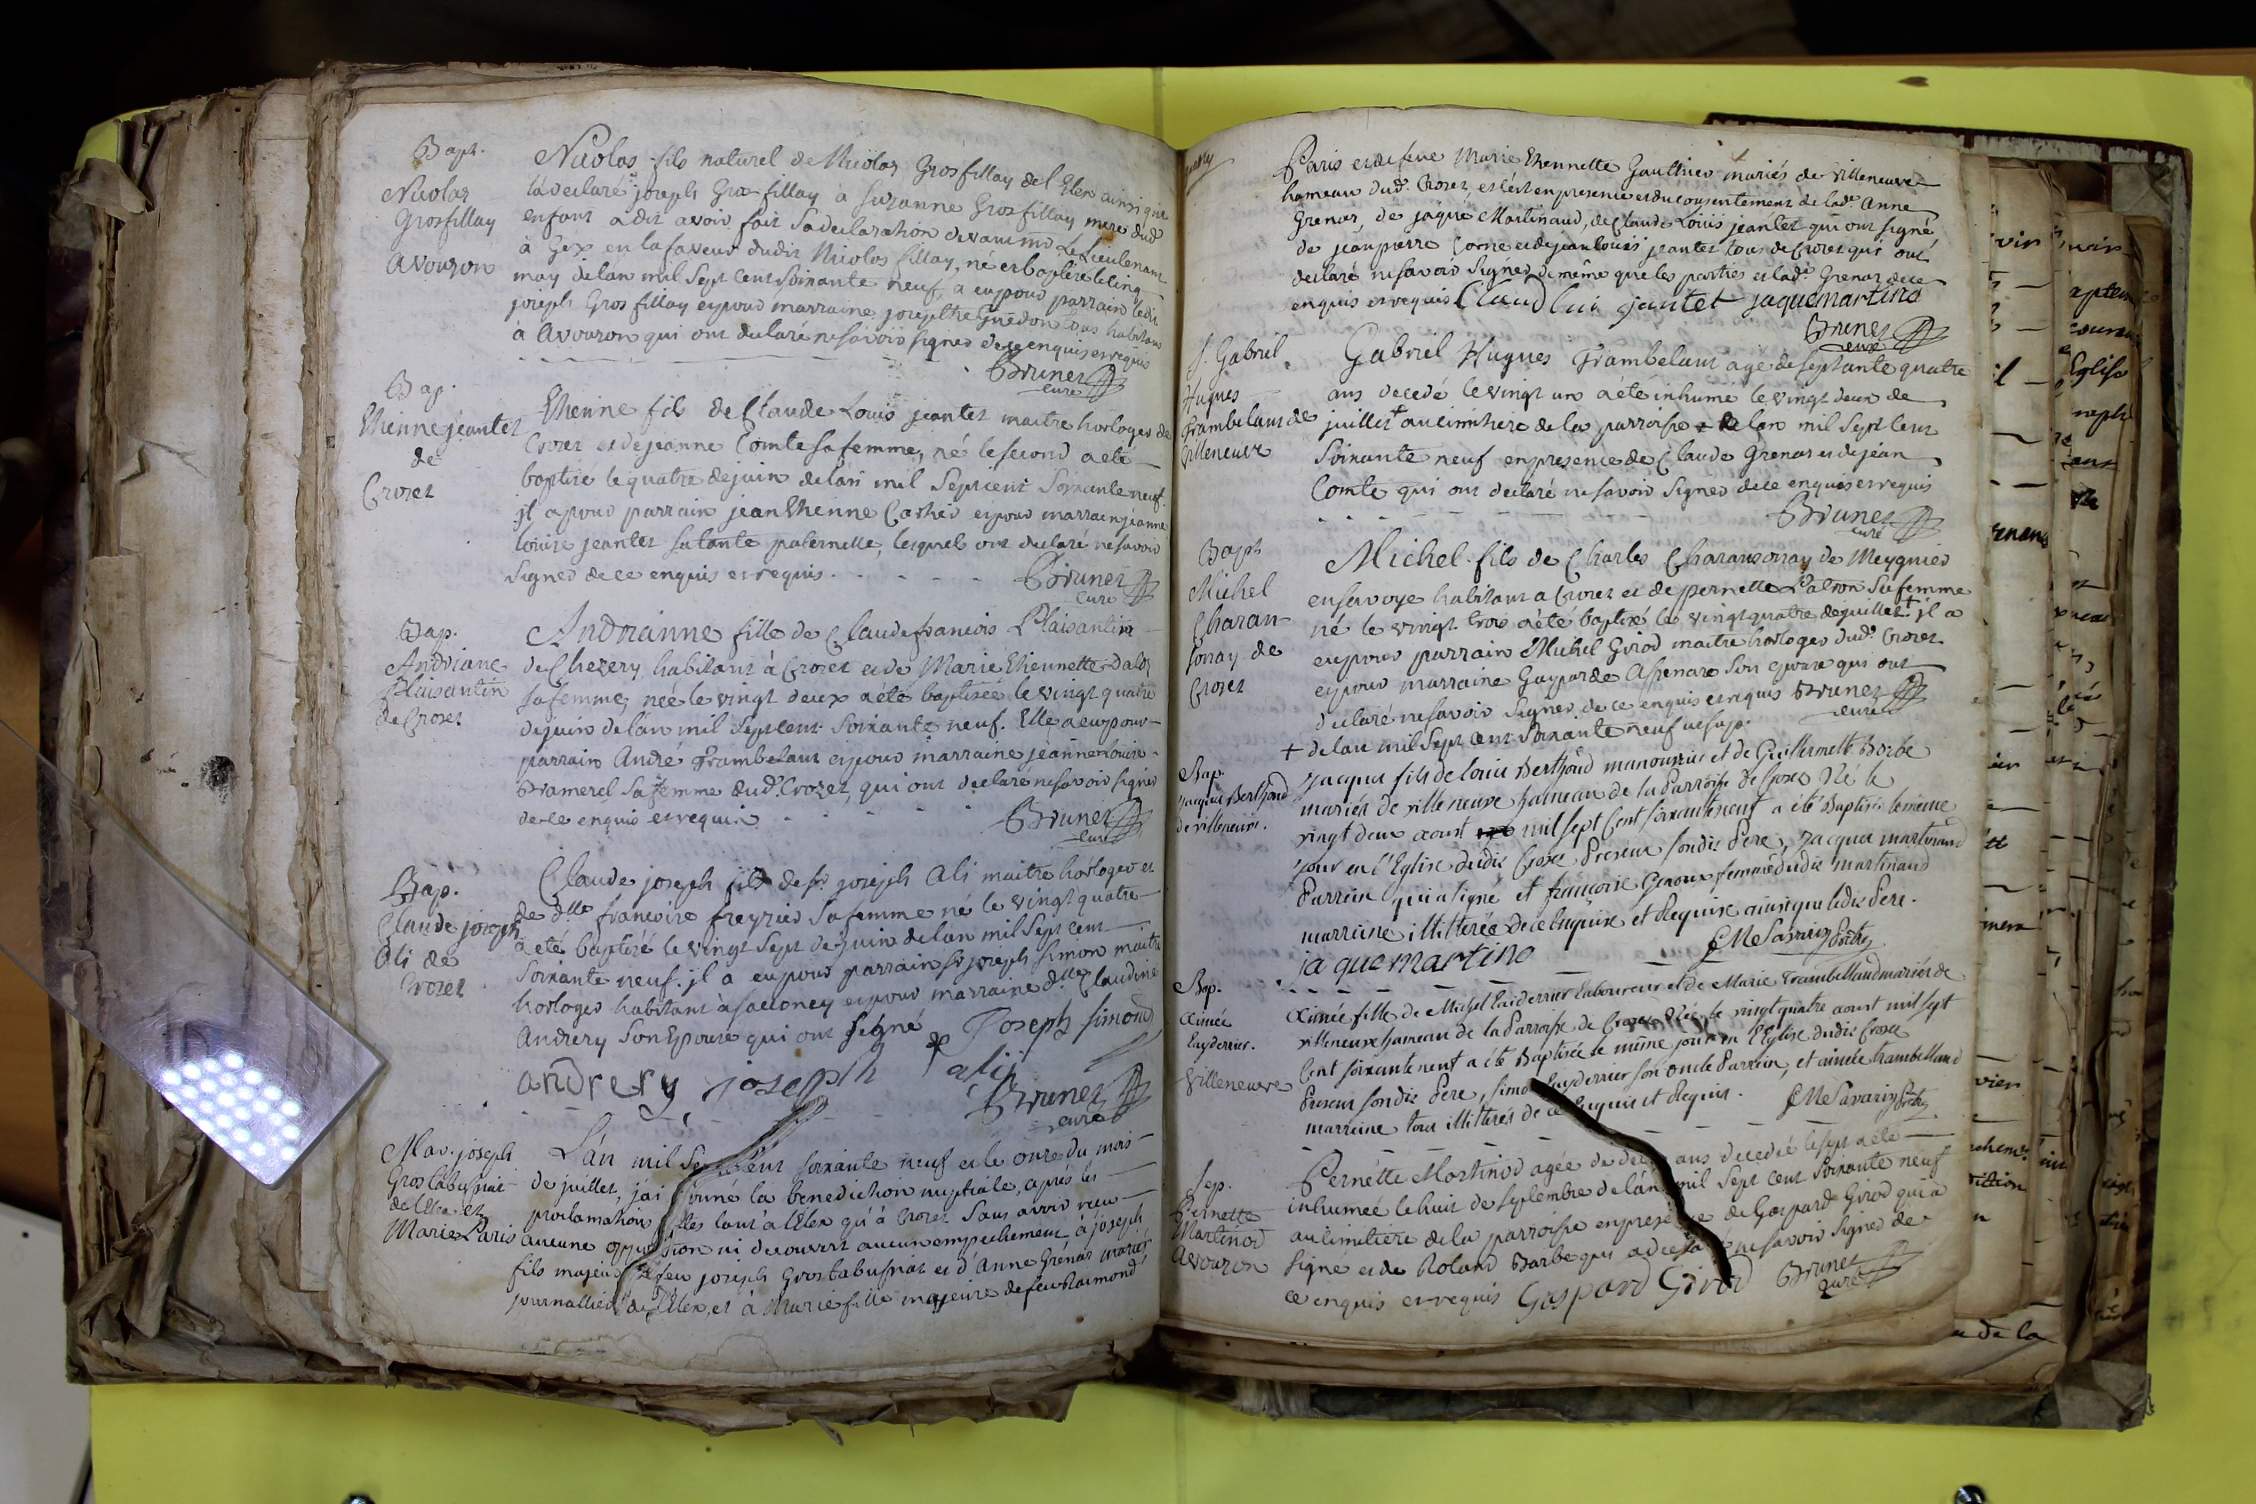 Bapt.
Nicolas
Grosfillay
Avouzon
Nicolas fils naturel de Nicolas Grosfillay de l'Elex ainsi que
l'a declaré joseph Grosfillay à suzanne Grosfillay mere dud.
enfant a dit avoir fait sa declaration devant mr Le Lieutenant
à Gex en la faveur dudit Nicolas fillay, né et baptisé le cinq
may de lan mil sept cent soixante neuf a eu pour parrain ledit
joseph Gros fillay et pour marraine josephte Guédon tous habitans
à Avouzon qui ont declaré ne sçavoir signer de ce enquis et requis
Brunet
curé
Bap.
Etienne jeantet
de
Crozet
Etienne fils de Claude Louis jeantet maitre horloger de
Crozet et de jeanne Comte sa femme, né le second a eté
baptisé le quatre de juin de lan mil sept cent soixante neuf.
il a pour parrain jean Etienne et pour marraine jeanne
louise jeantet sa tante paternelle, lesquels ont declaré ne savoir
signer de ce enquis et requis.
Brunet
curé
Bap.
Andriane
Plaisantin
de Crozet
Andrianne fille de Claude francois Plaisantin
de Chezery habitant à Crozet et de Marie Etiennette
sa femme, née le vingt deux a eté baptisée le vingt quatre
de juin de lan mil sept cent soixante neuf. Elle a eu pour
parrain André Frambelant et pour marraine jeanne louise
Bramerel sa femme dud. Crozet, qui ont declaré ne savoir signer
de ce enquis et requis
Brunet
curé
Bap.
Claude joseph
Ali de
Crozet
Claude joseph fils de sr. joseph Ali maitre horloger et
de dlle francoise freyzier sa femme né le vingt quatre
a eté baptisé le vingt sept de juin de lan mil sept cent
soixante neuf. il a eu pour parrain sr joseph simon maitre
horloger habitant à sacconey et pour marraine dlle Claudine
Andrery son Epouse qui ont signé Joseph simond
andrery joseph alij
Brunet
curé
Mar. joseph
Grostabussiat
de l'Elex et
Marie Paris
L'an mil sept cent soixante neuf et le onze du mois
de juillet, j'ai donné la benediction nuptiale, après les
proclamations faites tant a l'Elex qu'à Crozet sans avoir reçu
aucune opposition ni decouvert aucun empechement, à joseph
fils majeur de feu joseph Grostabussiat et d'Anne Grénar mariés
journallier de l'Elex, et à Marie fille majeure de feu Raimond
Paris et de feue Marie Etiennette Gauthier mariés de villeneuve
hameau dud. Crozet, et c'est en presence et du consentement de lad. Anne
Grenar, de jaque Martinaud, de Claude Louis jeantet qui ont signé
de jean pierre Comte et de jean louis jeantet tous de Crozet qui ont
declaré ne savoir signer de même que les parties et lad. Grenar de ce
enquis et requis Claud lui jantet jaque martino
Brunet
curé
S. Gabriel
Hugues
Frambelant de
Villeneuve
Gabriel Hugues Frambelant agé de septante quatre
ans decedé le vingt un a été inhumé le vingt deux de
juillet au cimitiere de la parroisse de lan mil sept cent
soixante neuf en presence de Claude Grenar et de jean
Comte qui ont declaré ne savoir signer de ce enquis et requis
Brunet
curé
Bapt
Michel
Charan-
sonay de
Crozet
Michel fils de Charles Charansonay de Meygnier
en savoye habitant a Crozet et de pernette Patron sa femme
né le vingt trois a été baptisé le vingt quatre de juillet + il a
eu pour parrain Michel Girod maitre horloger dud. Crozet
et pour marraine Gasparde son epouse qui ont
declaré ne savoir signer de ce enquis et requis Brunet
curé
+ de lan mil sept cent soixante neuf
Bap.
Jacque Berthoud
de villeneuve.
Jacque fils de louis Berthoud manouvrier et de Guillermette Borbe
mariés de villeneuve hameau de la Parroisse de Crozet Né le
vingt deux aoust mil sept Cent soixante neuf a été Baptisé le même
jour en l'Eglise dudit Crozet Present sondit Pere, Jacque martinaud
Parrein qui a signé et françoise Genoux femme dudit martinaud
marreine illitterée de ce Enquise et Requise ainsi que ledit Pere.
ja que martino
CM Savarin Prêtre
Bap.
Aimée
Layderrier.
Villeneuve
Aimée fille de Michel Layderrier Laboureur et de Marie Trambelland mariés de
villeneuve hameau de la Parroisse de Crozet Née le vingt quatre aoust mil sept
Cent soixante neuf a été Baptisée le même jour en l'Eglise dudit Crozet
Present sondit Pere, simon Layderrier son oncle Parrein, et aimée trambelland
marreine tous illitterés de ce Enquis et Requis.
CM Savarin Prêtre
Sep.
Pernette
Martinod
Avouzon
Pernette Martinod agée de deux ans decedée le sept a eté
inhumée le huit de septembre de lan mil sept cent soixante neuf
au cimitiere de la parroisse en presence de Gaspard Girod qui a
signé et de Roland Barbe qui a declaré ne savoir signer de
ce enquis et requis Gaspard Girod Brunet
curé